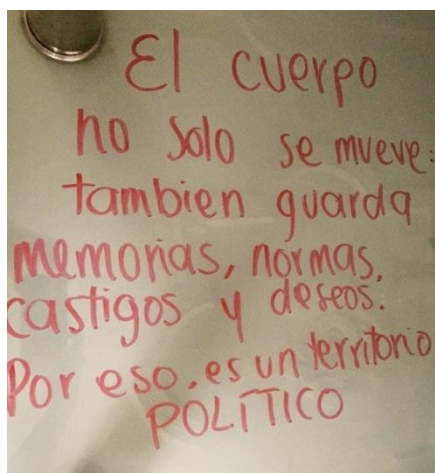 El cuerpo
no solo se mueve:
tambien guarda
memorias, normas,
castigos y deseos.
Por eso, es un territorio
POLÍTICO